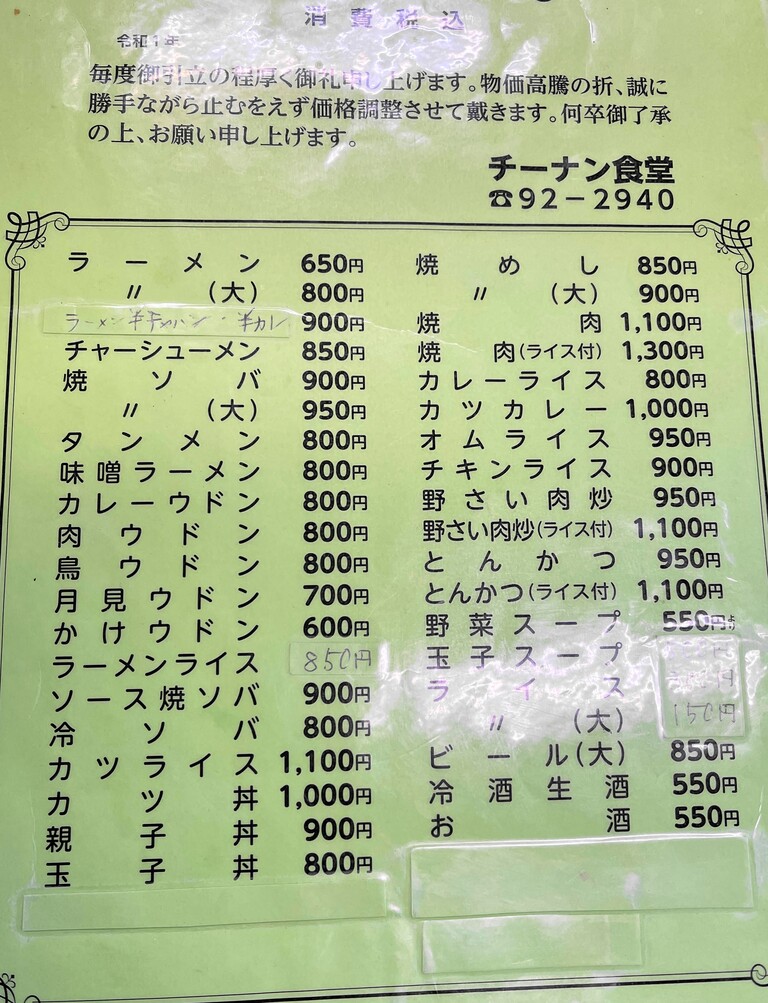 消費税込
令和1年
毎度御引立の程厚く御礼申し上げます。物価高騰の折、誠に
勝手ながら止むをえず価格調整させて戴きます。何卒御了承
の上、お願い申し上げます。
チーナン食堂
☎92-2940
ラーメン 650円
〃 (大) 800円
ラーメン半チャハン・半カレ 900円
チャーシューメン 850円
焼ソバ 900円
〃 (大) 950円
タンメン 800円
味噌ラーメン 800円
カレーウドン 800円
肉ウドン 800円
鳥ウドン 800円
月見ウドン 700円
かけウドン 600円
ラーメンライス 850円
ソース焼ソバ 900円
冷ソバ 800円
カツライス 1,100円
カツ丼 1,000円
親子丼 900円
玉子丼 800円
焼めし 850円
〃 (大) 900円
焼肉 1,100円
焼肉(ライス付) 1,300円
カレーライス 800円
カツカレー 1,000円
オムライス 950円
チキンライス 900円
野さい肉炒 950円
野さい肉炒(ライス付) 1,100円
とんかつ 950円
とんかつ(ライス付) 1,100円
野菜スープ 550円
玉子スープ
ライス
〃 (大) 150円
ビール(大) 850円
冷酒生酒 550円
お酒 550円